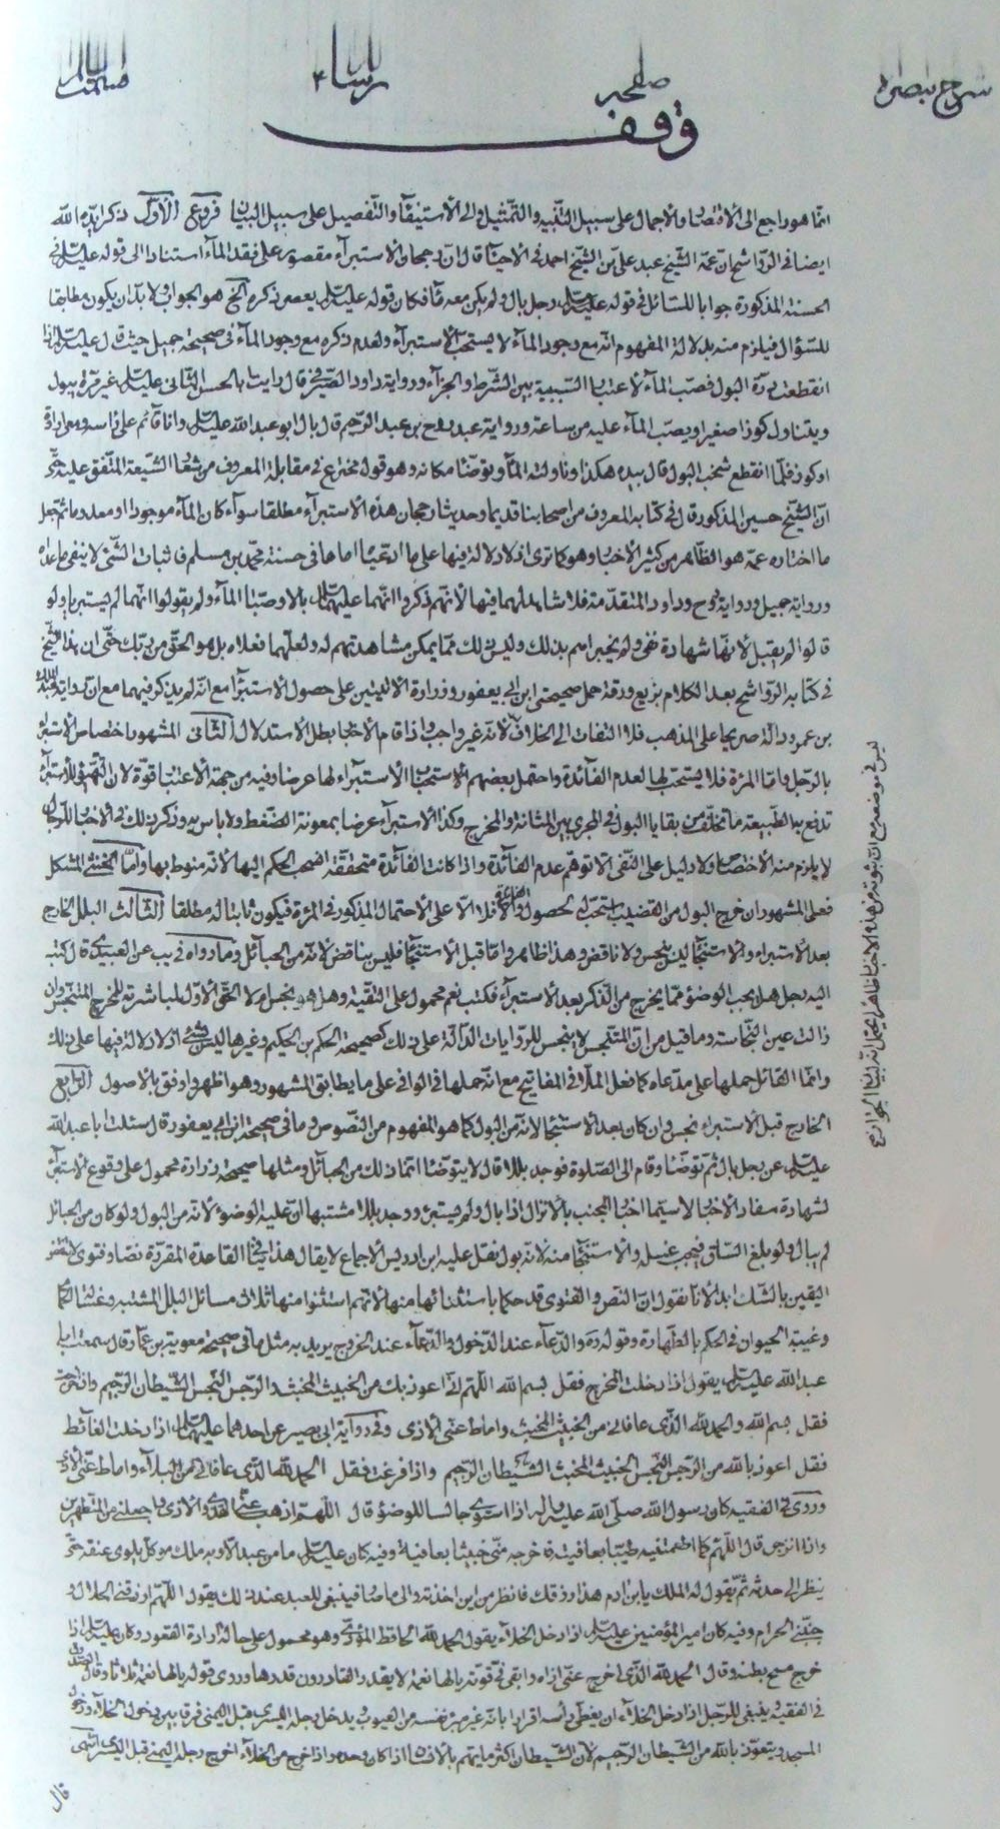 شرح تبصره
وقف
انما هو راجع الى الاقتصار والاجمال على سبيل التنبيه والتمثيل والى الاستيفاء والتفصيل على سبيل البيان فروع الاول ذكر ايده الله
ايضا في الرواشح ان عمه الشيخ عبد علي بن الشيخ احمد في الاحياء قال ان رجحان الاستبراء مقصور على فقد الماء استنادا الى قوله عليه السلام في
الحسنة المذكورة جوابا للسائل في قوله رجل بال ولم يكن معه ماء فكان قوله عليه السلام يعصر ذكره الخ هو الجواب ولا بد ان يكون مطابقا
للسؤال فيلزم منه بدلالة المفهوم انه مع وجود الماء لا يستحب الاستبراء ولعدم ذكره مع وجود الماء في صحيحة جميل حيث قال عليه السلام اذا
انقطعت درة البول فصب الماء لاعتبار السببية بين الشرط والجزاء ورواية داود الصرمي قال رايت ابا الحسن الثالث عليه السلام غير مرة يبول
ويتناول كوزا صغيرا ويصب الماء عليه من ساعته ورواية روح بن عبد الرحيم قال بال ابو عبد الله عليه السلام وانا قائم على راسه ومعي اداوة
او كوز فلما انقطع شخب البول قال بيده هكذا وناولته الماء وتوضا مكانه وهو قول مخترع في مقابلة المعروف من شعار الشيعة المتفق عليه حتى
ان الشيخ حسين المذكور قال في كتابه المعروف من اصحابنا قديما وحديثا رجحان هذه الاستبراء مطلقا سواء كان الماء موجودا او معدوما ثم جعل
ما اختاره عمه هو الظاهر من كثير الاخبار وهو كما ترى اذ لا دلالة فيها على ما ادعيا اما ما في حسنة محمد بن مسلم فاثبات الشئ لا ينفي ما عداه
ورواية جميل ورواية روح وداود المتقدمة فلا شاهد لهما فيها لانهم ذكروا انهما عليهما السلام بالا وصبا الماء ولم يقولوا انهما لم يستبريا ولو
قالوا لم يقبل لانها شهادة نفي ولم يخبرا هم بذلك وليس ذلك مما يمكن مشاهدتهم له ولعلهما فعلاه بل هو الحق من ربك حتى ان هذا الشيخ
في كتابه الرواشح بعد الكلام بزيع ورقة حمل صحيحتي ابن ابي يعفور وزرارة الاتيتين على حصول الاستبراء مع انه لم يذكر فيهما مع ان رواية عبد الملك
بن عمرو دالة صريحا على المذهب فلا التفات الى الخلاف لانه غير واجب واذا قام الاحتمال بطل الاستدلال الثاني المشهور اختصاص الاستبراء
بالرجل واما المرءة فلا يستحب لها لعدم الفائدة واحتمل بعضهم الاستحباب الاستبراء لها عرضا وفيه من جهة الاعتبار قوة لان
تدفع بها الطبيعة ما تخلف من بقايا البول في المجرى بين المثانة والمخرج وكذا الاستبراء عرضا بمعونة الضغط ولا باس به وذكر ذلك في الاخبار للرجال
لا يلزم منه الاختصاص ولا دليل على النفي الا توهم عدم الفائدة واذا كانت الفائدة متحققة انسحب الحكم اليها لانه منوط بها واما الخنثى المشكل
فعلى المشهور ان خرج البول من القضيب استحب له لحصول الفائدة والا فلا الا على الاحتمال المذكور في المرءة فيكون ثابتا له مطلقا الثالث البلل الخارج
بعد الاستبراء والاستنجاء ليس بنجس ولا ناقض وهذا ظاهر واما قبل الاستنجاء فليس بناقض لانه من الحبائل وما رواه في يب عن العبيدي قال كتب
اليه رجل هل يجب الوضوء مما يخرج من الذكر بعد الاستبراء فكتب نعم محمول على التقية وهل هو نجس ام لا الحق الاول لمباشرته للمخرج المتنجس وان
زالت عين النجاسة وما قيل من ان المتنجس لا ينجس للروايات الدالة على ذلك كصحيحة الحكم بن الحكيم وغيرها ليس بشئ اذ لا دلالة فيها على ذلك
وانما القائل حملها على مدعاه كما فعل الملا في المفاتيح مع انه حملها في الوافي على ما يطابق المشهور وهو اظهر واوفق بالاصول الرابع
الخارج قبل الاستبراء نجس وان كان بعد الاستنجاء لانه من البول كما هو المفهوم من النصوص وما في صحيحة ابن ابي يعفور قال سئلت ابا عبد الله
عليه السلام عن رجل بال ثم توضا وقام الى الصلوة فوجد بللا قال لا يتوضا انما ذلك من الحبائل ومثلها صحيحة زرارة محمول على وقوع الاستبراء
لشهادة مفاد الاخبار لا سيما اخبار المجنب بالانزال اذا بال ولم يستبرئ ووجد بللا مشتبها ان عليه الوضوء لانه من البول ولو كان من الحبائل
لم يبال ولو بلغ الساق فيجب غسله والاستنجاء منه لانه بول نقل عليه ابن ادريس الاجماع لا يقال هذا ينافي القاعدة المقررة نصا وفتوى لا ينقض
اليقين بالشك ابدا لانا نقول ان النص والفتوى قد حكما باستثنائها منها لانهم استثنوا منها ثلاث مسائل البلل المشتبه وغسالة الحمام
وغيبة الحيوان في الحكم بالطهارة وقوله ره والدعاء عند الدخول والدعاء عند الخروج يريد به مثل ما في صحيحة معوية بن عمار قال سمعت ابا
عبد الله عليه السلام يقول اذا دخلت المخرج فقل بسم الله اللهم اني اعوذ بك من الخبيث المخبث الرجس النجس الشيطان الرجيم واذا خرجت
فقل بسم الله والحمد لله الذي عافاني من الخبيث المخبث واماط عني الاذى وفي رواية ابي بصير عن احدهما عليهما السلام اذا دخلت الغائط
فقل اعوذ بالله من الرجس النجس الخبيث المخبث الشيطان الرجيم واذا فرغت فقل الحمد لله الذي عافاني من البلاء واماط عني الاذى
وروى في الفقيه كان رسول الله صلى الله عليه واله اذا استوى جالسا للوضوء قال اللهم اذهب عني القذى والاذى واجعلني من المتطهرين
واذا انزحر قال اللهم كما اطعمتنيه طيبا بعافية فاخرجه مني خبيثا بعافية وفيه كان عليه السلام ما من عبد الا وبه ملك موكل يلوي عنقه حتى
ينظر الى حدثه ثم يقول له الملك يا بن ادم هذا رزقك فانظر من اين اخذته والى ما صار فينبغي للعبد عند ذلك يقول اللهم ارزقني الحلال و
جنبني الحرام وفيه كان امير المؤمنين عليه السلام اذا دخل الخلاء يقول الحمد لله الحافظ المؤدي وهو محمول على حالة ارادة القعود وكان عليه السلام اذا
خرج مسح بطنه وقال الحمد لله الذي اخرج عني اذاه وابقى في قوته يا لها نعمة لا يقدر القادرون قدرها وروى قوله يا لها نعمة ثلاثا وقال الصدوق
في الفقيه وينبغي للرجل اذا دخل الخلاء ان يغطي راسه اقرارا بانه غير مبرء نفسه من العيوب ويدخل رجله اليسرى قبل اليمنى فرقا بين دخول الخلاء ودخول
المسجد ويتعوذ بالله من الشيطان الرجيم لان الشيطان اكثر ما يهم بالانسان اذا كان وحده واذا خرج من الخلاء اخرج رجله اليمنى قبل اليسرى انتهى
قال